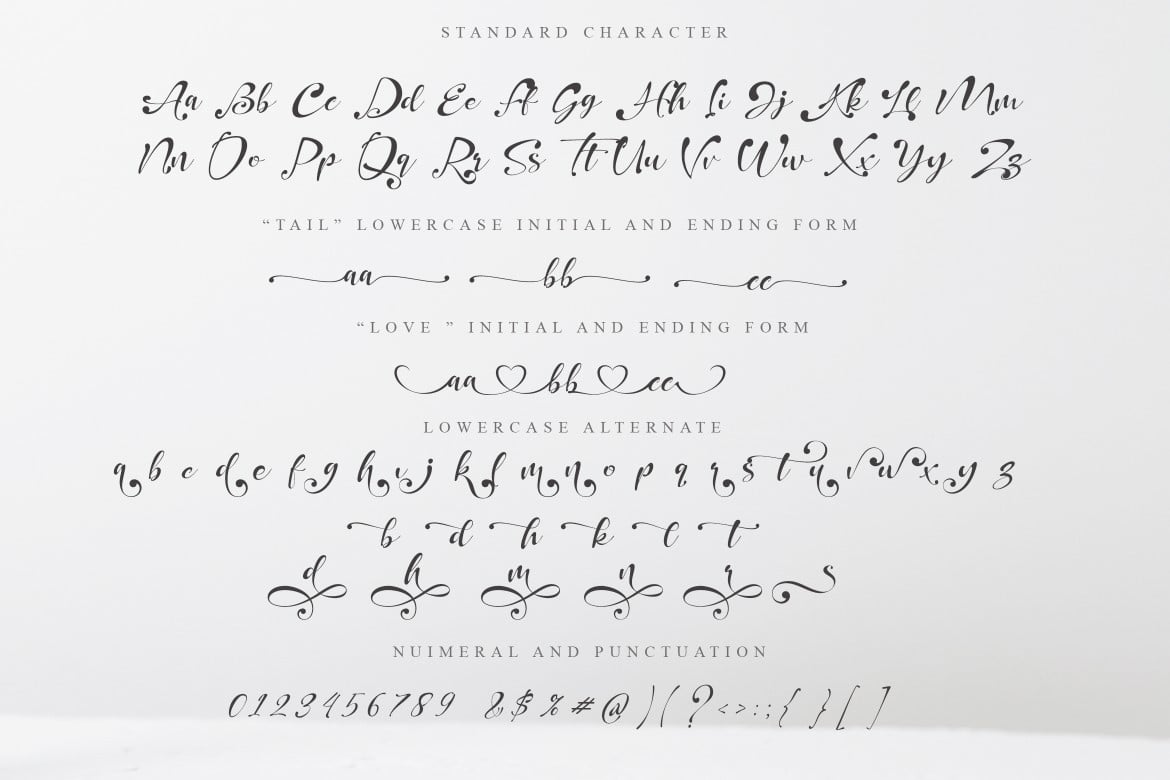 STANDARD CHARACTER
Aa Bb Cc Dd Ee Ff Gg Hh Ii Jj Kk Ll Mm
Nn Oo Pp Qq Rr Ss Tt Uu Vv Ww Xx Yy Zz
“TAIL” LOWERCASE INITIAL AND ENDING FORM
aa bb cc
“LOVE ” INITIAL AND ENDING FORM
aa bb cc
LOWERCASE ALTERNATE
a b c d e f g h i j k l m n o p q r s t u v w x y z
b d h k l t
d h m n r s
NUIMERAL AND PUNCTUATION
0123456789 &$%#@)(?<>:;{ }[ ]